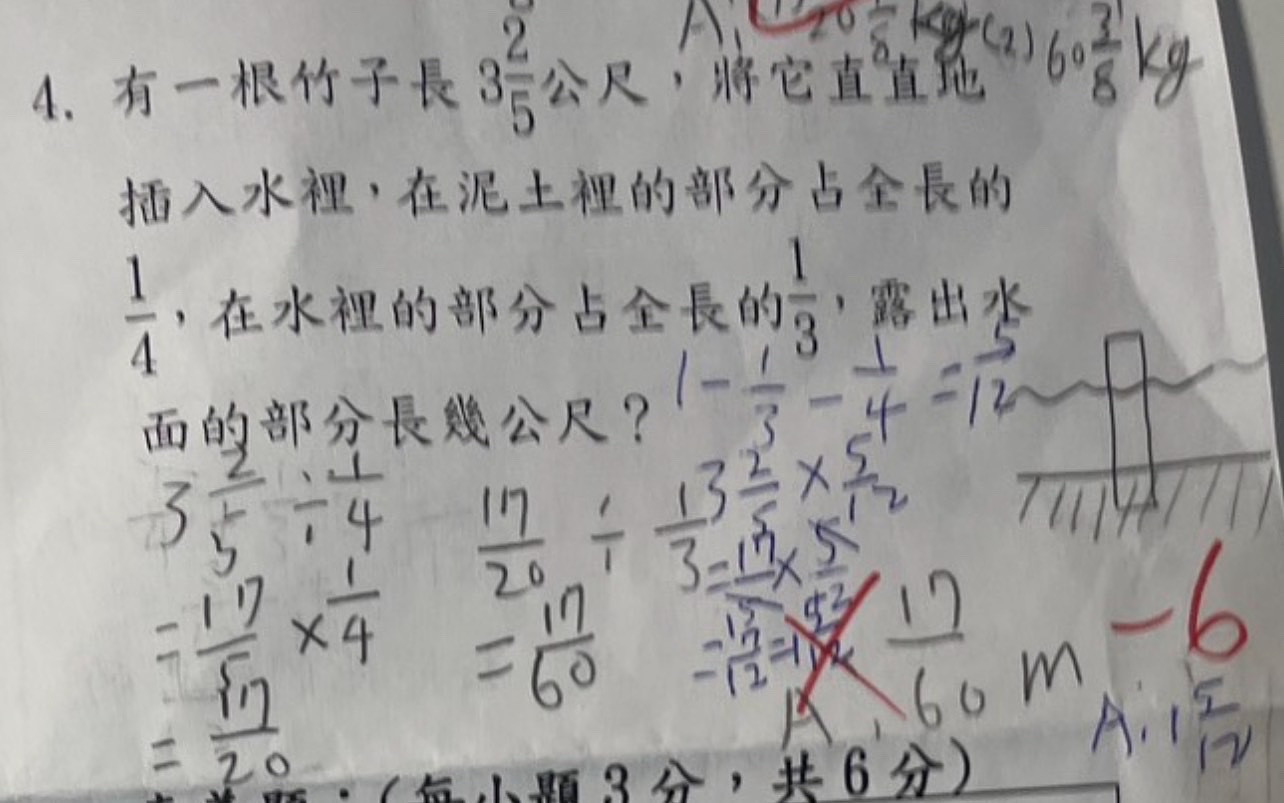 A. 20 1/8 kg (2) 60 3/8 kg
4. 有一根竹子長 3 2/5 公尺，將它直直地
插入水裡，在泥土裡的部分占全長的
1/4，在水裡的部分占全長的 1/3，露出水
面的部分長幾公尺？
1 - 1/3 - 1/4 = 5/12
3 2/5 ÷ 1/4
= 17/5 × 1/4
= 17/20
17/20 ÷ 1/3
= 17/60
3 2/5 × 5/12
= 17/5 × 5/12
= 17/12 = 1 5/12
A. 17/60 m
-6
A. 1 5/12
(每小題 3 分，共 6 分)